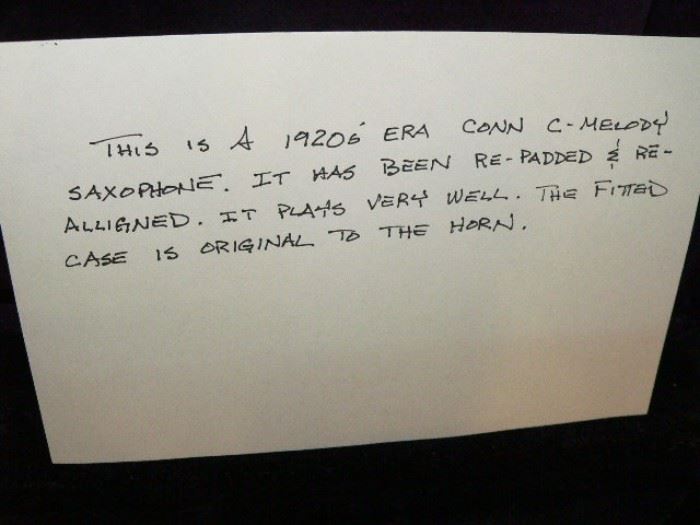 THIS IS A 1920s' ERA CONN C-MELODY
SAXOPHONE. IT HAS BEEN RE-PADDED & RE-
ALLIGNED. IT PLAYS VERY WELL. THE FITTED
CASE IS ORIGINAL TO THE HORN.